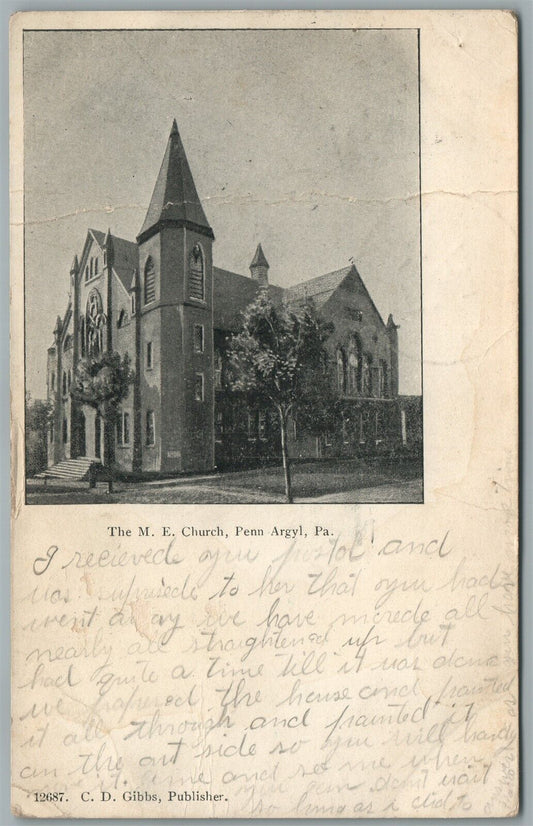 The M. E. Church, Penn Argyl, Pa.
I recieved oyu postol and
was supriseds to her that oyu had
went away we have moved all
nearly all straightened up but
had quite a time till it was done
we papered the house and painted
it all through and painted it
on the out side so oyu will hardly
it time and see me when
oyu can dont wait
so long as i did to
12687. C. D. Gibbs, Publisher.